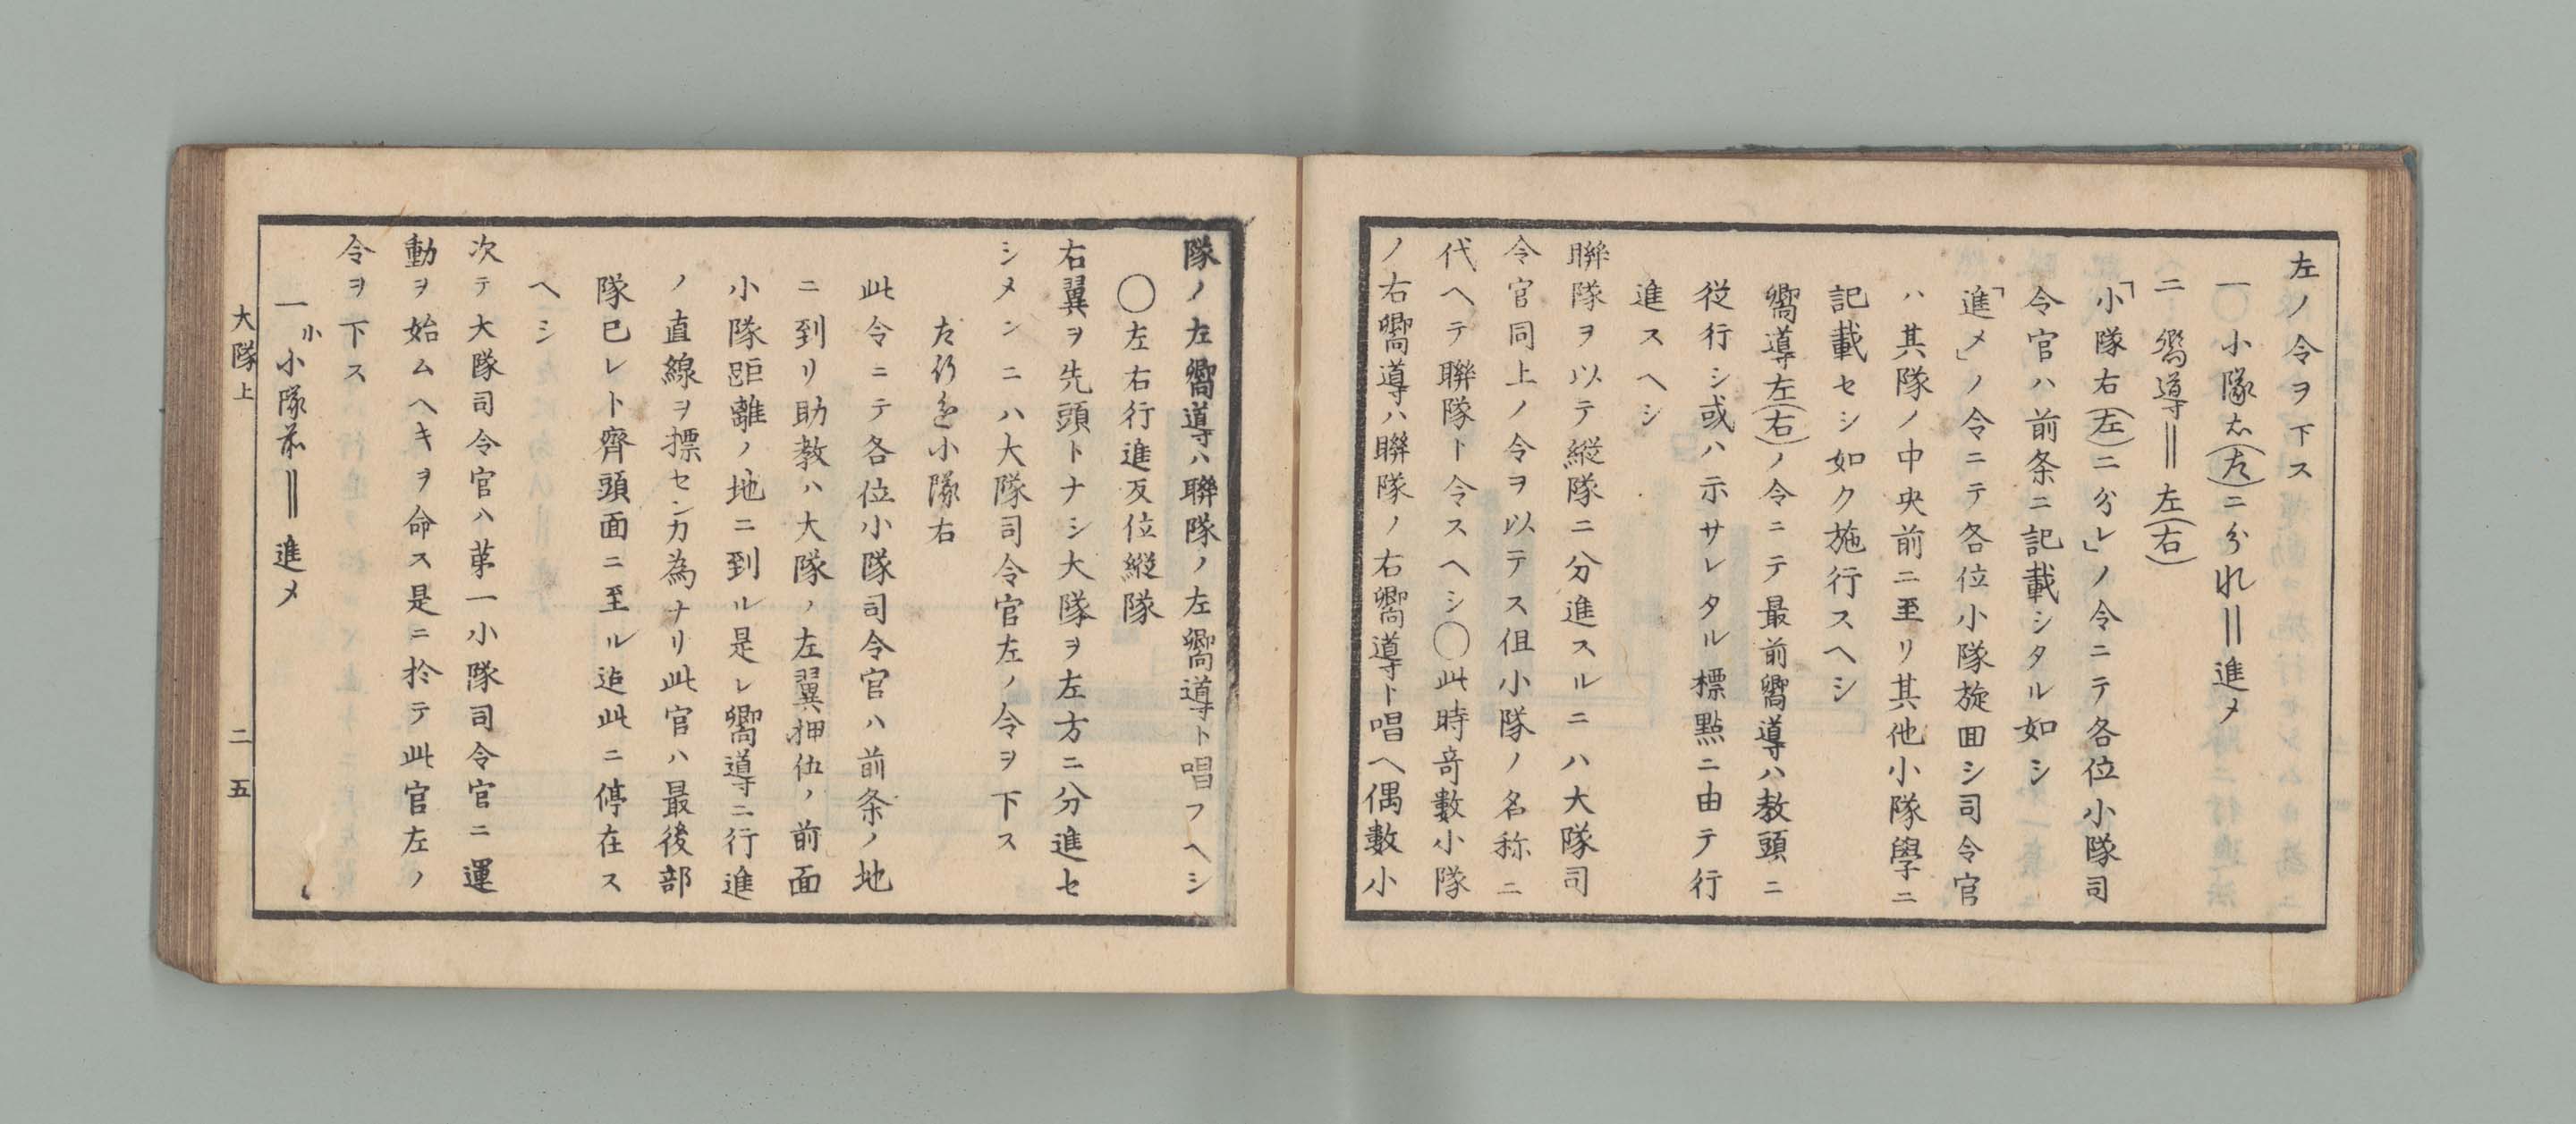 左ノ令ヲ下ス
一 小隊右(左)ニ分れ‖進メ
二 嚮導‖左(右)
「小隊右(左)ニ分レ」ノ令ニテ各位小隊司
令官ハ前条ニ記載シタル如シ
「進メ」ノ令ニテ各位小隊旋囬シ司令官
ハ其隊ノ中央前ニ至リ其他小隊學ニ
記載セシ如ク施行スヘシ
嚮導左(右)ノ令ニテ最前嚮導ハ教頭ニ
従行シ或ハ示サレタル標點ニ由テ行
進スヘシ
聯隊ヲ以テ縦隊ニ分進スルニハ大隊司
令官同上ノ令ヲ以テス伹小隊ノ名称ニ
代ヘテ聯隊ト令スヘシ〇此時竒數小隊
ノ右嚮導ハ聯隊ノ右嚮導ト唱ヘ偶數小
隊ノ左嚮導ハ聯隊ノ左嚮導ト唱フヘシ
〇左右行進叐位縦隊
右翼ヲ先頭トナシ大隊ヲ左方ニ分進セ
シメンニハ大隊司令官左ノ令ヲ下ス
左行進小隊右
此令ニテ各位小隊司令官ハ前条ノ地
ニ到リ助教ハ大隊ノ左翼押伍ノ前面
小隊距離ノ地ニ到ル是レ嚮導ニ行進
ノ直線ヲ標センカ為ナリ此官ハ最後部
隊已レト齊頭面ニ至ル迠此ニ停在ス
ヘシ
次テ大隊司令官ハ苐一小隊司令官ニ運
動ヲ始ムヘキヲ命ス是ニ於テ此官左ノ
令ヲ下ス
小
一 小隊前‖進メ
大隊上 二五